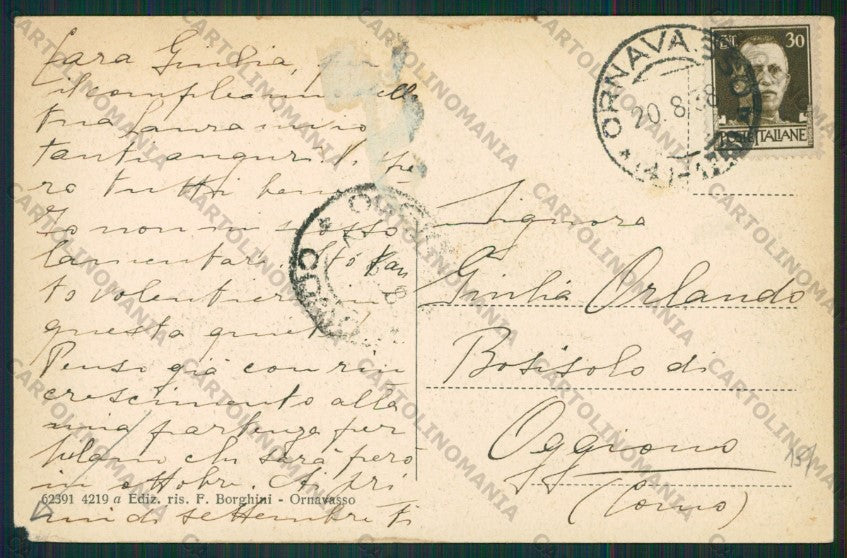 Cara Giulia, per
il compleanno della
tua Laura invio
tanti auguri. Spe
ro tutti bene.
Io non mi posso
lamentare. Sto tan
to volentieri in
questa quiete.
Penso già con rin
crescimento alla
mia partenza per
che sarà però
in ottobre. Ai pri
mi di settembre
62391 4219 a Ediz. ris. F. Borghini - Ornavasso
ORNAVASSO
20.8.38
CENT 30
POSTE ITALIANE
Signora
Giulia Orlando
Bosisolo di
Oggiono
(Como)
CARTOLINOMANIA